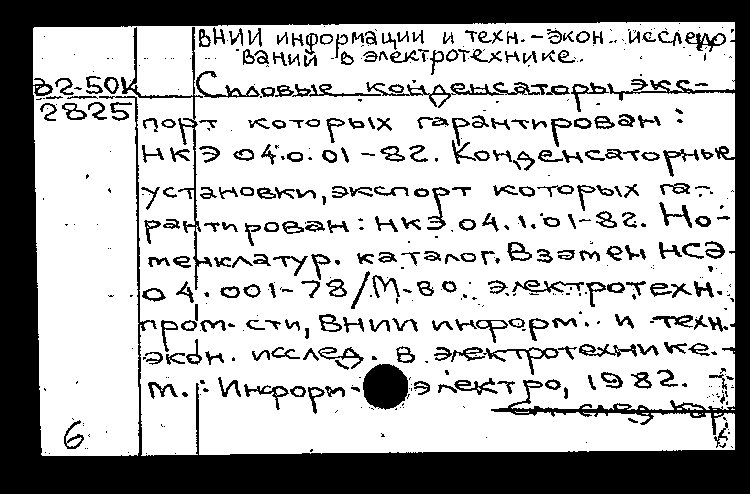 ВНИИ информации и техн.-экон. исследо-
ваний в электротехнике.
82-50К Силовые конденсаторы, экс-
2825
порт которых гарантирован:
НКЭ 04.0.01-82. Конденсаторные
установки, экспорт которых га-
рантирован: НКЭ 04.1.01-82. Но-
менклатур. каталог. Взамен НСЭ-
04.001-78/М-во электротехн.
пром-сти, ВНИИ информ. и техн.-
экон. исслед. в электротехнике.-
М.: Информ-электро, 1982. -
См. след. кар
6